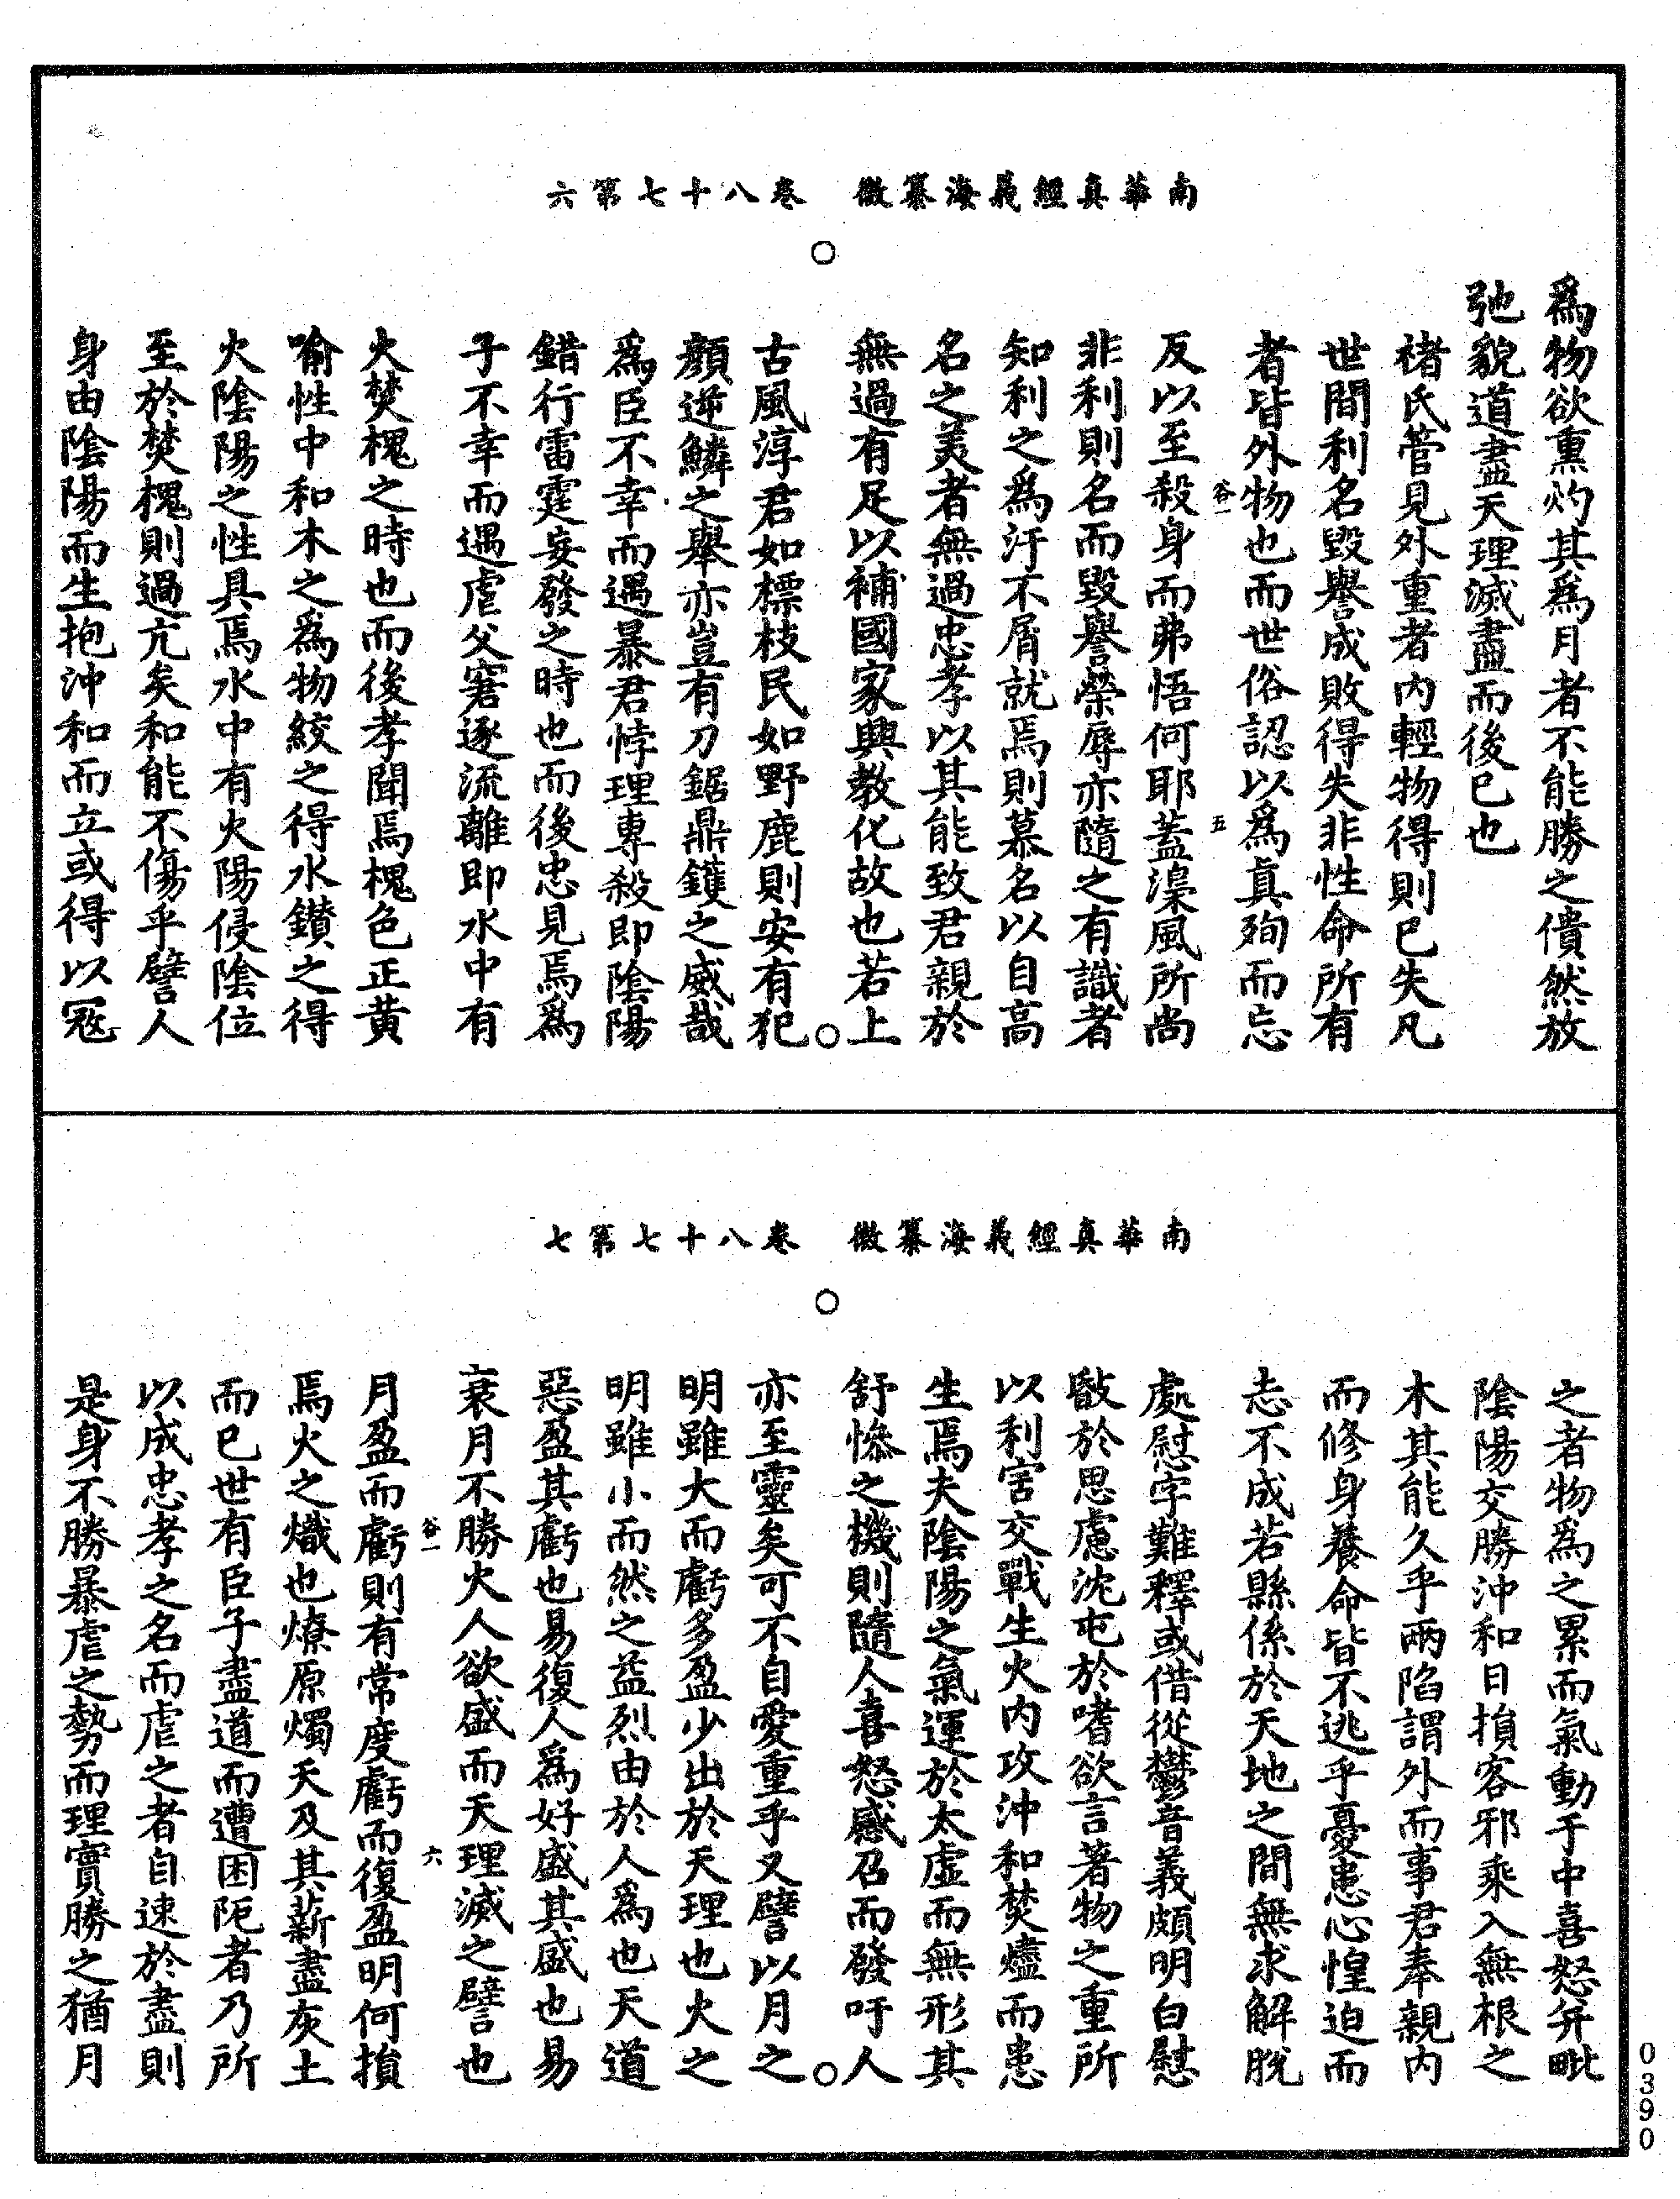 南華真經義海纂微　卷八十七第六
為物欲熏灼其為月者不能勝之僓然放
弛貌道盡天理滅盡而後已也
褚氏管見外重者內輕物得則已失凡
世間利名毀譽成敗得失非性命所有
者皆外物也而世俗認以為真殉而忘
谷一
五
反以至殺身而弗悟何耶蓋澆風所尚
非利則名而毀譽榮辱亦隨之有識者
知利之為汙不屑就焉則慕名以自高
名之美者無過忠孝以其能致君親於
無過有足以補國家興教化故也若上
古風淳君如標枝民如野鹿則安有犯
顏逆鱗之舉亦豈有刀鋸鼎鑊之威哉
為臣不幸而遇暴君悖理專殺即陰陽
錯行雷霆妄發之時也而後忠見焉為
子不幸而遇虐父窘逐流離即水中有
火焚槐之時也而後孝聞焉槐色正黃
喻性中和木之為物絞之得水鑽之得
火陰陽之性具焉水中有火陽侵陰位
至於焚槐則過亢矣和能不傷乎譬人
身由陰陽而生抱沖和而立或得以寇
南華真經義海纂微　卷八十七第七
之者物為之累而氣動于中喜怒并毗
陰陽交勝沖和日損客邪乘入無根之
木其能久乎兩陷謂外而事君奉親內
而修身養命皆不逃乎憂患心惶迫而
志不成若縣係於天地之間無求解脫
處慰字難釋或借從鬱音義頗明白慰
暋於思慮沈屯於嗜欲言著物之重所
以利害交戰生火內攻沖和焚燼而患
生焉夫陰陽之氣運於太虛而無形其
舒慘之機則隨人喜怒感召而發吁人
亦至靈矣可不自愛重乎又譬以月之
明雖大而虧多盈少出於天理也火之
明雖小而然之益烈由於人為也天道
惡盈其虧也易復人為好盛其盛也易
衰月不勝火人欲盛而天理滅之譬也
谷一
六
月盈而虧則有常度虧而復盈明何損
焉火之熾也燎原燭天及其薪盡灰土
而已世有臣子盡道而遭困阨者乃所
以成忠孝之名而虐之者自速於盡則
是身不勝暴虐之勢而理實勝之猶月
0390